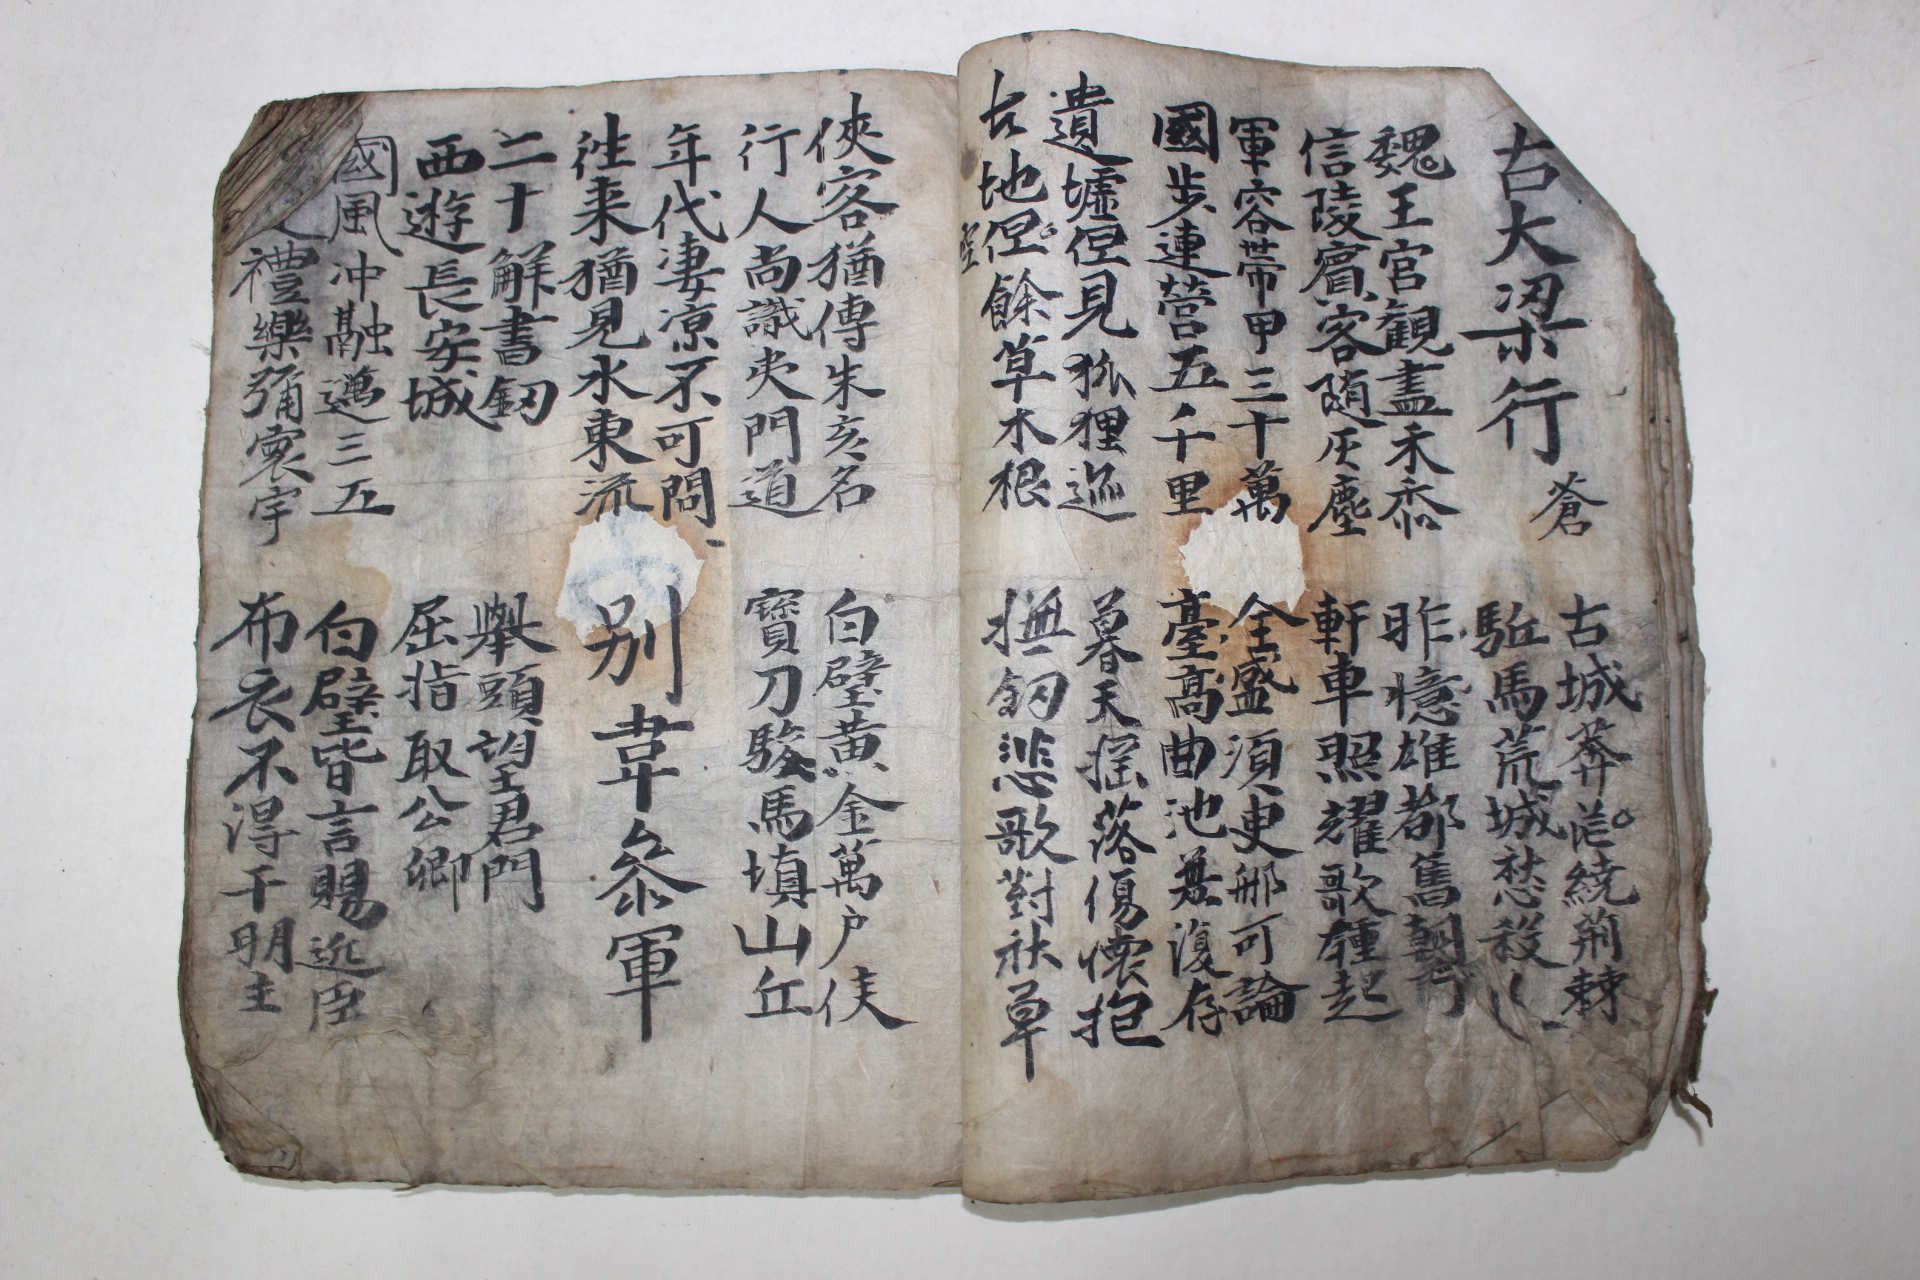 古大梁行
蒼
古城莽茫繞荊棘
駈馬荒城愁殺人
魏王宮観盡禾黍
信陵賓客随灰塵
昨憶雄都舊朝市
軒車照耀歌鍾起
軍容世帯甲三十萬
國歩連營五千里
全盛須臾那可論
臺高曲池無復存
遺墟但見狐狸迹
古地但餘草木根
暮天搖落傷懷抱
撫釼悲歌對秋草
俠客猶傳朱亥名
行人尚識夷門道
白璧黄金萬户侯
寶刀駿馬塡山丘
年代凄凉不可問
徃来猶見水東流
別韋叅軍
二十解書釼
西遊長安城
舉頭望君門
屈指取公卿
國風冲融邁三五
禮樂弥寰宇
白璧皆言賜近臣
布衣不得干明主